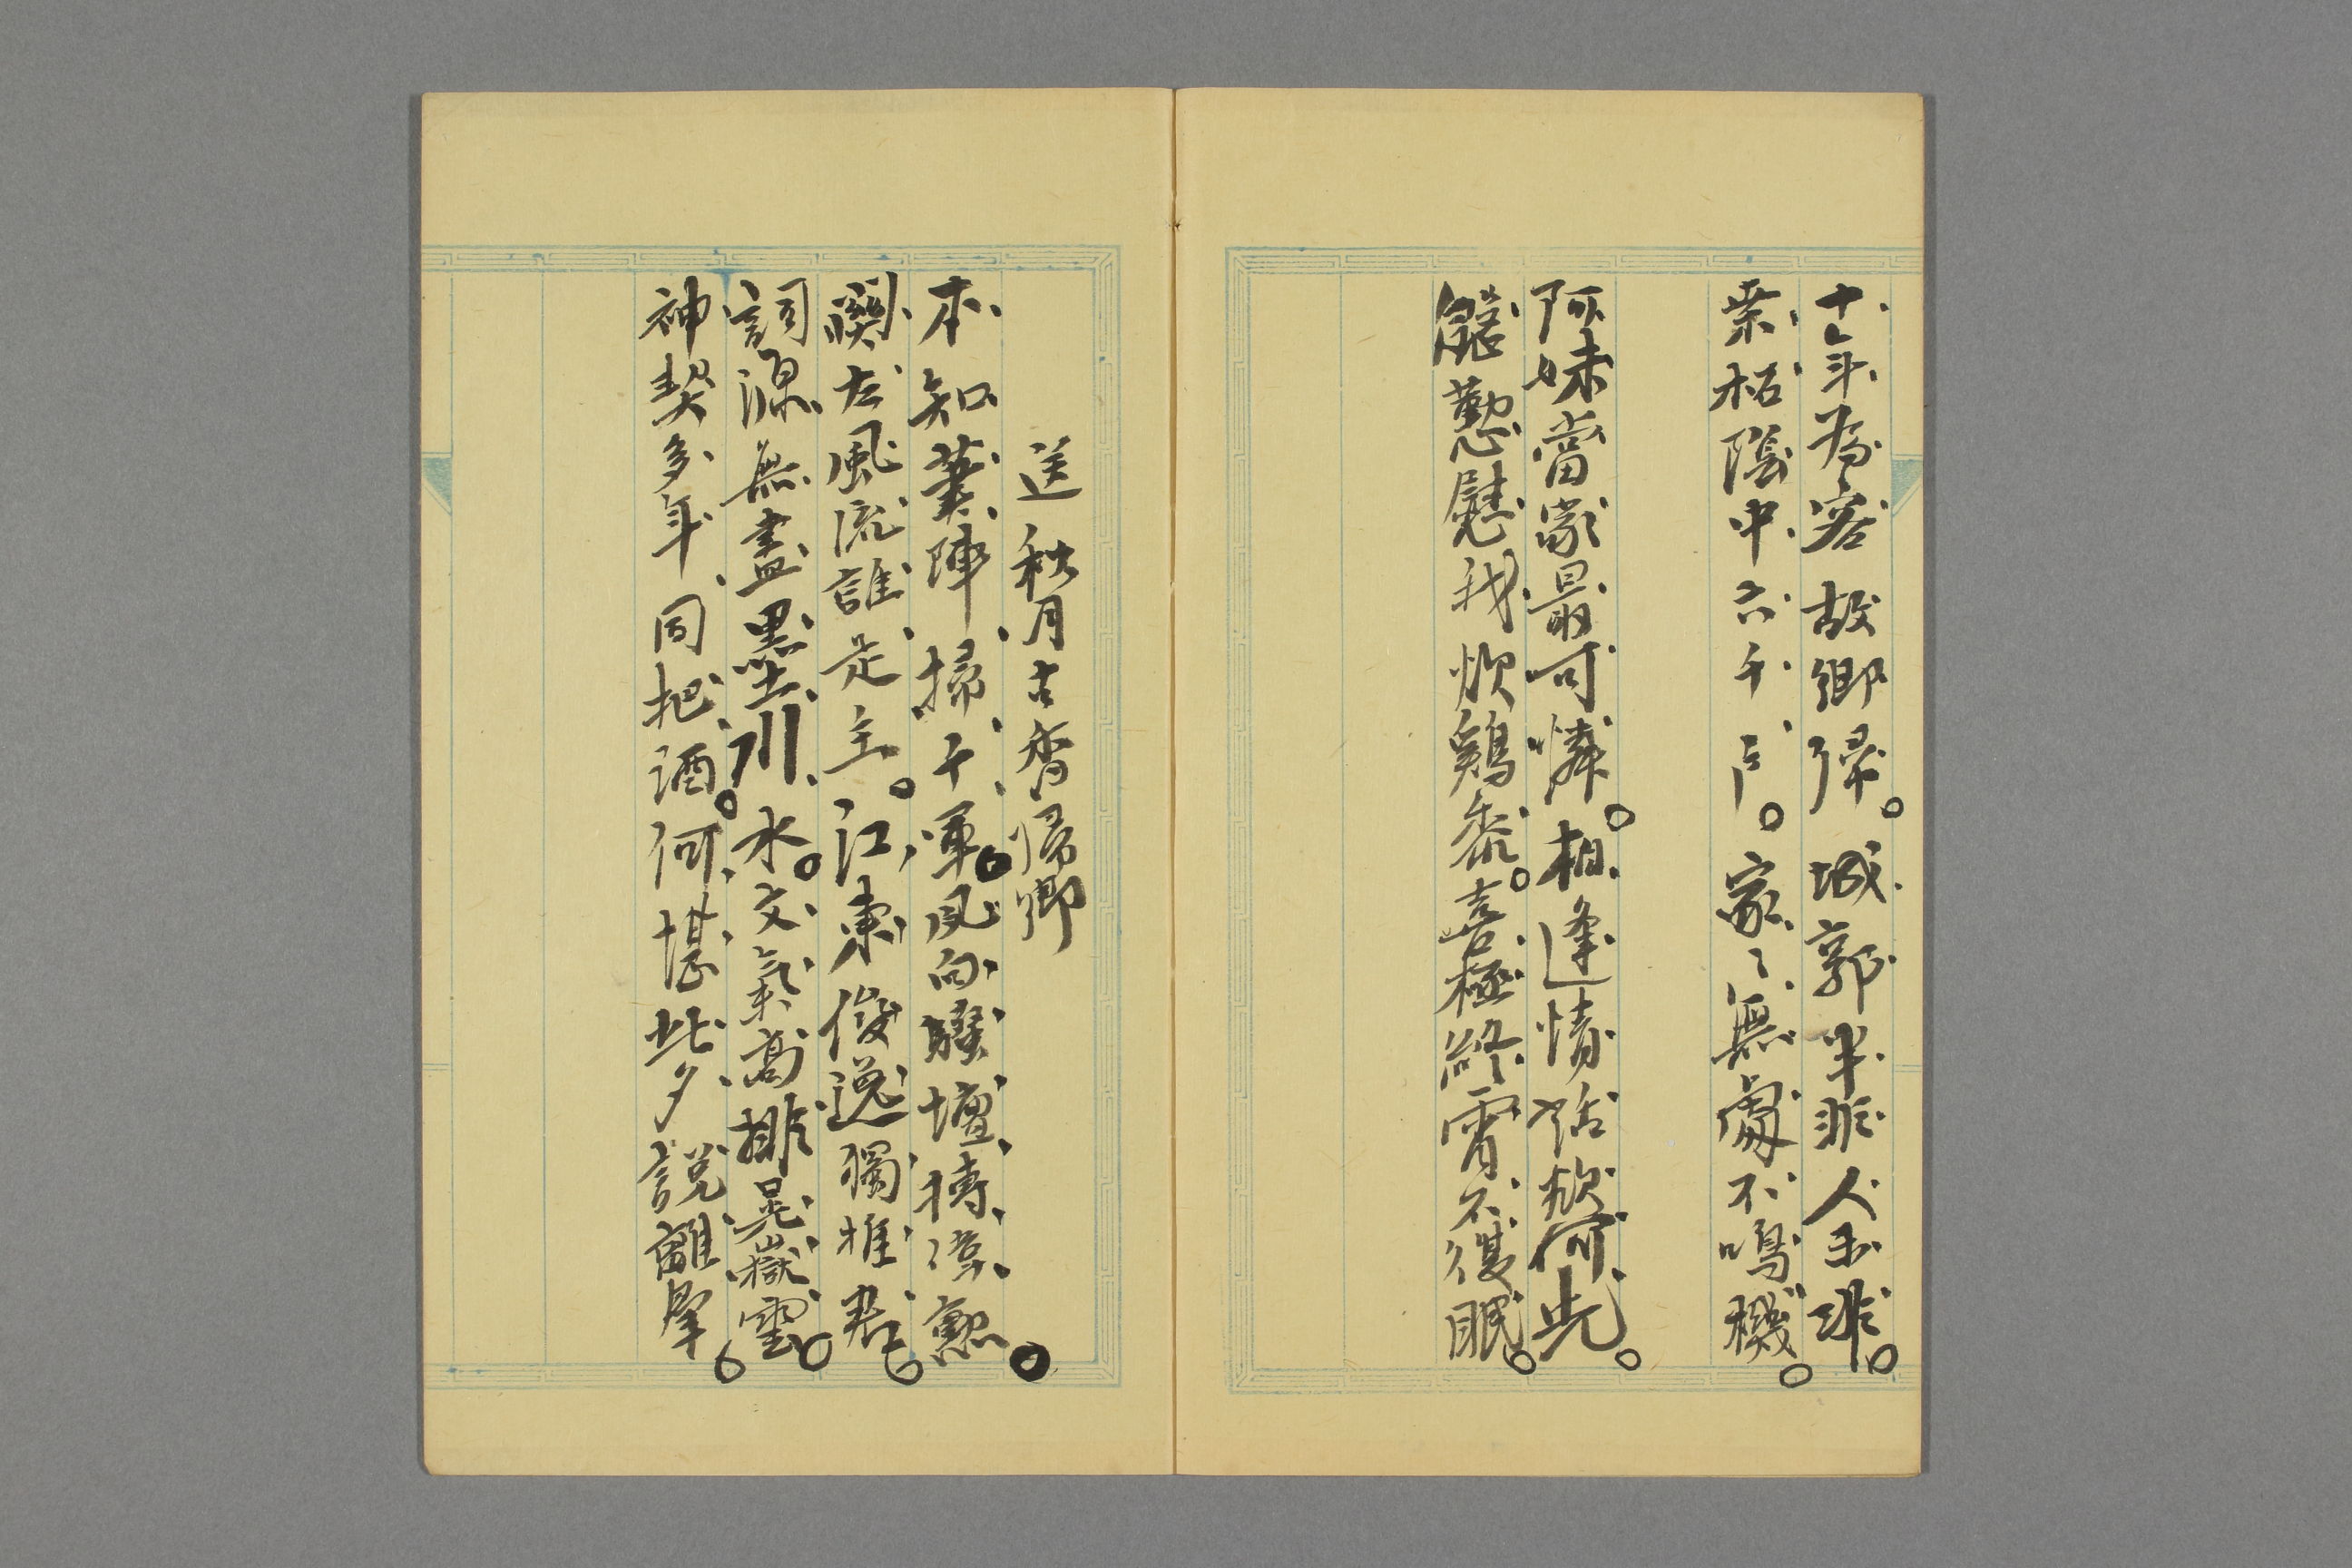 十年為客故鄉歸城郭半非人亦非
桑柘陰中六千戶家〻無處不鳴機
阿妹當家最可憐相逢情話欣何此
慇懃慰我炊鷄黍喜極終宵不復眠
送秋月古香歸鄉
本知筆陣掃千軍風向騷壇樹策勳
關左風流誰是主江東俊逸獨推君
詞源無盡墨川水文氣高排晃嶽雲
神契多年同把酒何堪此夕説離羣